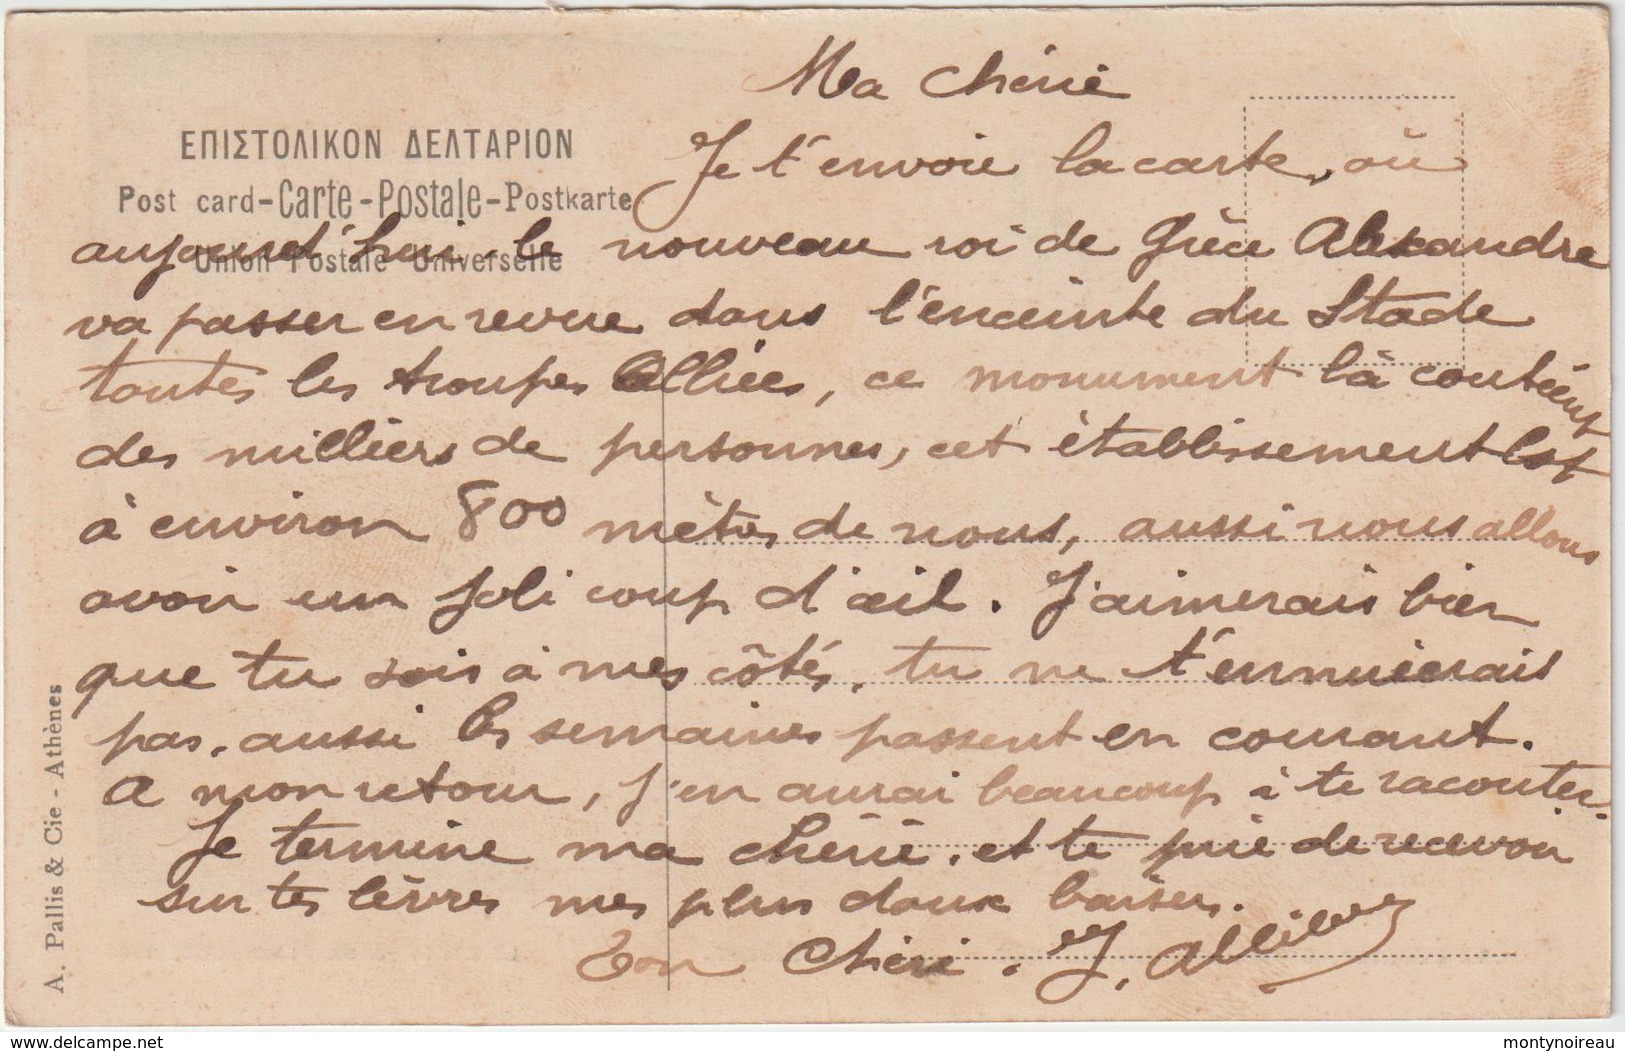 Ma Chérie
ΕΠΙΣΤΟΛΙΚΟΝ ΔΕΛΤΑΡΙΟΝ
Post card-Carte-Postale-Postkarte
Union Postale Universelle
Je t'envoie la carte, où
aujourd'hui le nouveau roi de Grèce Alexandre
va passer en revue dans l'enceinte du Stade
toutes les troupes Alliées, ce monument là contient
des milliers de personnes, cet établissement est
à environ 800 mètres de nous, aussi nous allons
avoir un joli coup d'œil. J'aimerais bien
que tu sois à mes côtés, tu ne t'ennuierais
pas. aussi les semaines passent en courant.
A mon retour, j'en aurai beaucoup à te raconter.
Je termine ma chérie. et te prie de recevoir
sur tes lèvres mes plus doux baisers.
Ton Chéri. J.
A. Pallis & Cie - Athènes
delcampe.net
montynoireau